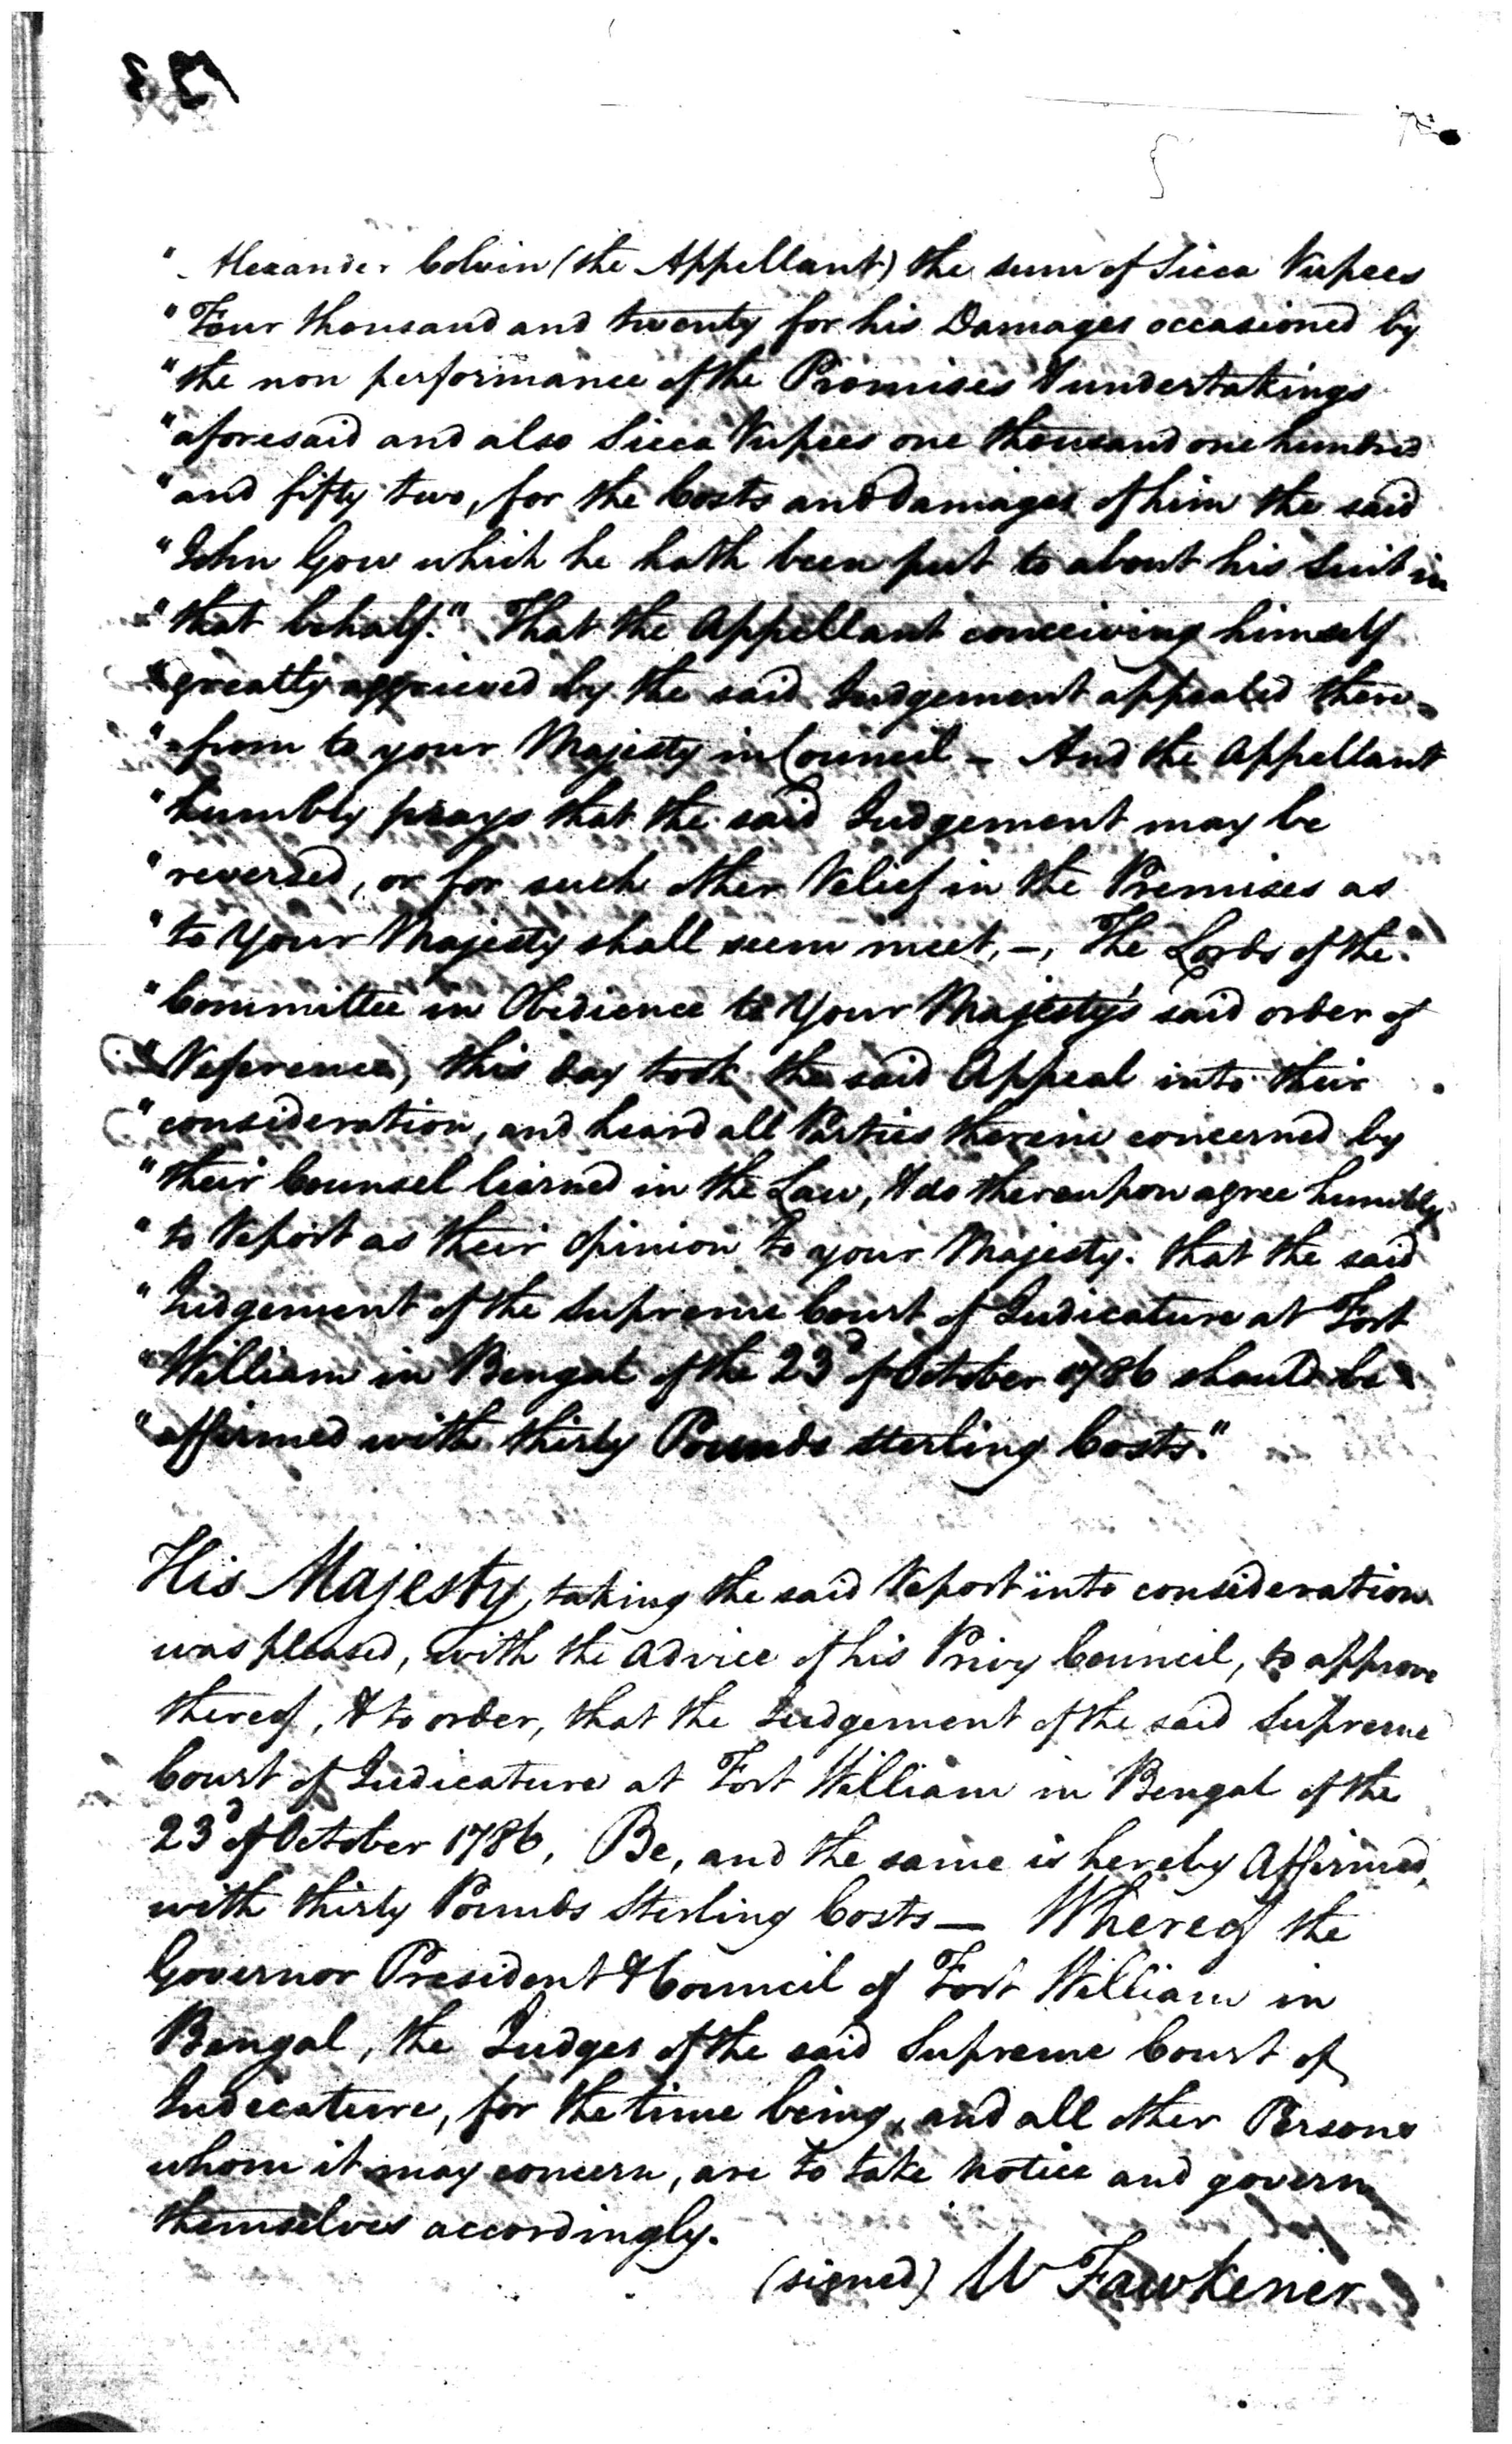 " Alexander Colvin (the Appellant) the sum of Sicca Rupees
" Four thousand and twenty for his Damages occasioned by
" the non performance of the Promises & undertakings
" aforesaid and also Sicca Rupees one thousand one hundred
" and fifty two, for the Costs and Damages of him the said
" John Gow which he hath been put to about his Suit in
" that behalf." That the Appellant conceiving himself
" greatly aggrieved by the said Judgement appealed there-
" from to your Majesty in Council - And the Appellant
" humbly prays that the said Judgement may be
" reversed, or for such other Relief in the Premises as
" to Your Majesty shall seem meet, -, The Lords of the
" Committee in Obedience to Your Majesty's said order of
" Reference, this day took the said Appeal into their
" consideration, and heard all Parties therein concerned by
" their Counsel learned in the Law, & do thereupon agree humbly
" to Report as their opinion to your Majesty. that the said
" Judgement of the Supreme Court of Judicature at Fort
" William in Bengal of the 23d of October 1786 should be
" affirmed with thirty Pounds sterling Costs."
His Majesty, taking the said Report into consideration
was pleased, with the advice of his Privy Council, to approve
thereof, & to order, that the Judgement of the said Supreme
Court of Judicature at Fort William in Bengal of the
23d of October 1786, Be, and the same is hereby Affirmed,
with thirty Pounds Sterling Costs — Whereof the
Governor President & Council of Fort William in
Bengal, the Judges of the said Supreme Court of
Judicature, for the time being, and all other Persons
whom it may concern, are to take notice and govern
themselves accordingly.
(signed) W Fawkener